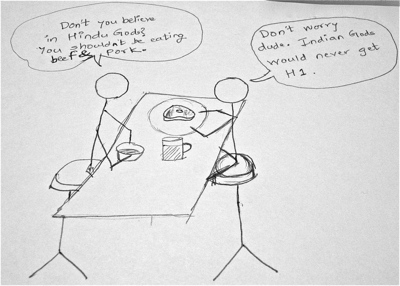 Don't you believe
in Hindu Gods?
You shouldn't be eating
beef & Pork.
Don't worry
dude. Indian Gods
would never get
H1.